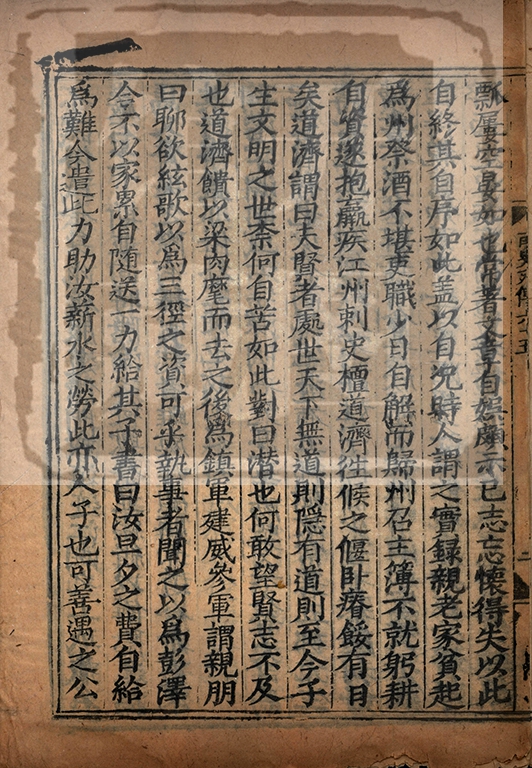 瓢屢空晏如也常著文章自娛頗示己志忘懷得失以此
自終其自序如此盖以自况時人謂之實録親老家貧起
爲州祭酒不堪吏職少日自解而歸州召主簿不就躬耕
自資遂抱羸疾江州刺史檀道濟往候之偃卧瘠餒有日
矣道濟謂曰夫賢者處世天下無道則隱有道則至今子
生文明之世柰何自苦如此對曰潜也何敢望賢志不及
也道濟饋以粱肉麾而去之後爲鎮軍建威參軍謂親朋
曰聊欲絃歌以爲三徑之資可乎執事者聞之以爲彭澤
令不以家累自隨送一力給其子書曰汝旦夕之費自給
爲難今遣此力助汝薪水之勞此亦人子也可善遇之公